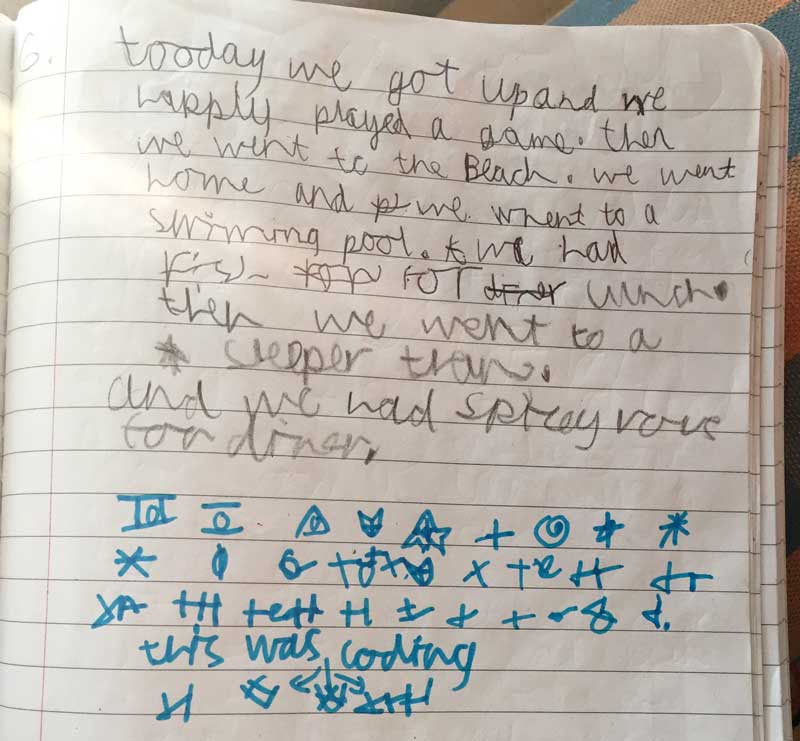 6.
tooday we got up and we
happly played a game. then
we went to the Beach. we went
home and we whent to a
swimming pool. we had
fish for lunch.
then we went to a
sleeper tran.
and we had spicey
for diner.
this was coding